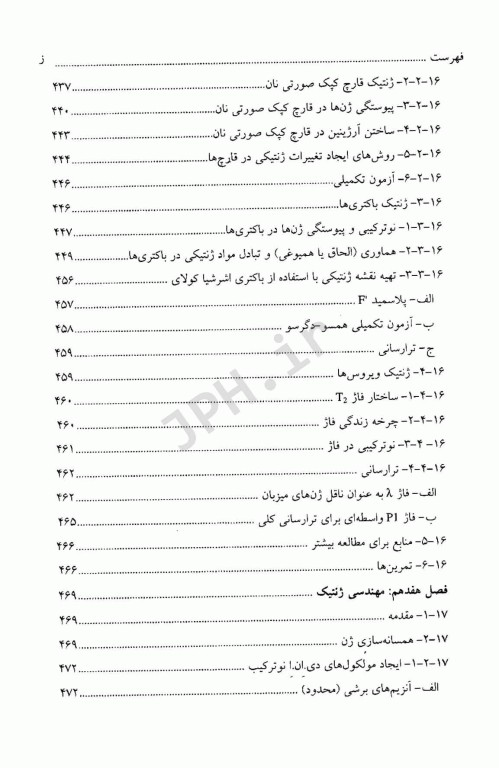 فهرست ........ ز
۱۶-۲-۲- ژنتیک قارچ کپک صورتی نان........۴۳۷
۱۶-۲-۳- پیوستگی ژن‌ها در قارچ کپک صورتی نان........۴۴۰
۱۶-۲-۴- ساختن آرژینین در قارچ کپک صورتی نان........۴۴۳
۱۶-۲-۵- روش‌های ایجاد تغییرات ژنتیکی در قارچ‌ها........۴۴۴
۱۶-۲-۶- آزمون تکمیلی........۴۴۶
۱۶-۳- ژنتیک باکتری‌ها........۴۴۶
۱۶-۳-۱- نوترکیبی و پیوستگی ژن‌ها در باکتری‌ها........۴۴۷
۱۶-۳-۲- هماوری (الحاق یا همیوغی) و تبادل مواد ژنتیکی در باکتری‌ها........۴۴۹
۱۶-۳-۳- تهیه نقشه ژنتیکی با استفاده از باکتری اشرشیا کولای ........۴۵۶
الف- پلاسمید F' ........۴۵۷
ب- آزمون تکمیلی همسو-دگرسو ........۴۵۸
ج- ترارسانی ........۴۵۹
۱۶-۴- ژنتیک ویروس‌ها ........۴۵۹
۱۶-۴-۱- ساختار فاژ T2 ........۴۶۰
۱۶-۴-۲- چرخه زندگی فاژ ........۴۶۰
۱۶-۴-۳- نوترکیبی در فاژ ........۴۶۱
۱۶-۴-۴- ترارسانی ........۴۶۲
الف- فاژ λ به عنوان ناقل ژن‌های میزبان ........۴۶۲
ب- فاژ P1 واسطه‌ای برای ترارسانی کلی ........۴۶۵
۱۶-۵- منابع برای مطالعه بیشتر ........۴۶۶
۱۶-۶- تمرین‌ها ........۴۶۶
فصل هفدهم: مهندسی ژنتیک ........۴۶۹
۱۷-۱- مقدمه ........۴۶۹
۱۷-۲- همسانه‌سازی ژن ........۴۶۹
۱۷-۲-۱- ایجاد مولکول‌های دی.اِن.اِا نوترکیب ........۴۷۲
الف- آنزیم‌های برشی (محدود) ........۴۷۲
JPH.ir